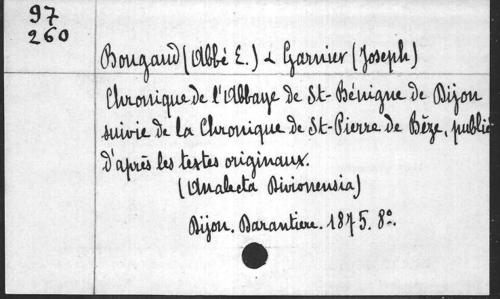 97
260
Bougaud (Abbé E.) & Garnier (Joseph)
Chronique de l'Abbaye de St-Bénigne de Dijon
suivie de la Chronique de St-Pierre de Bèze, publié
d'après les textes originaux.
(Analecta Divionensia)
Dijon. Darantiere. 1875. 8º.